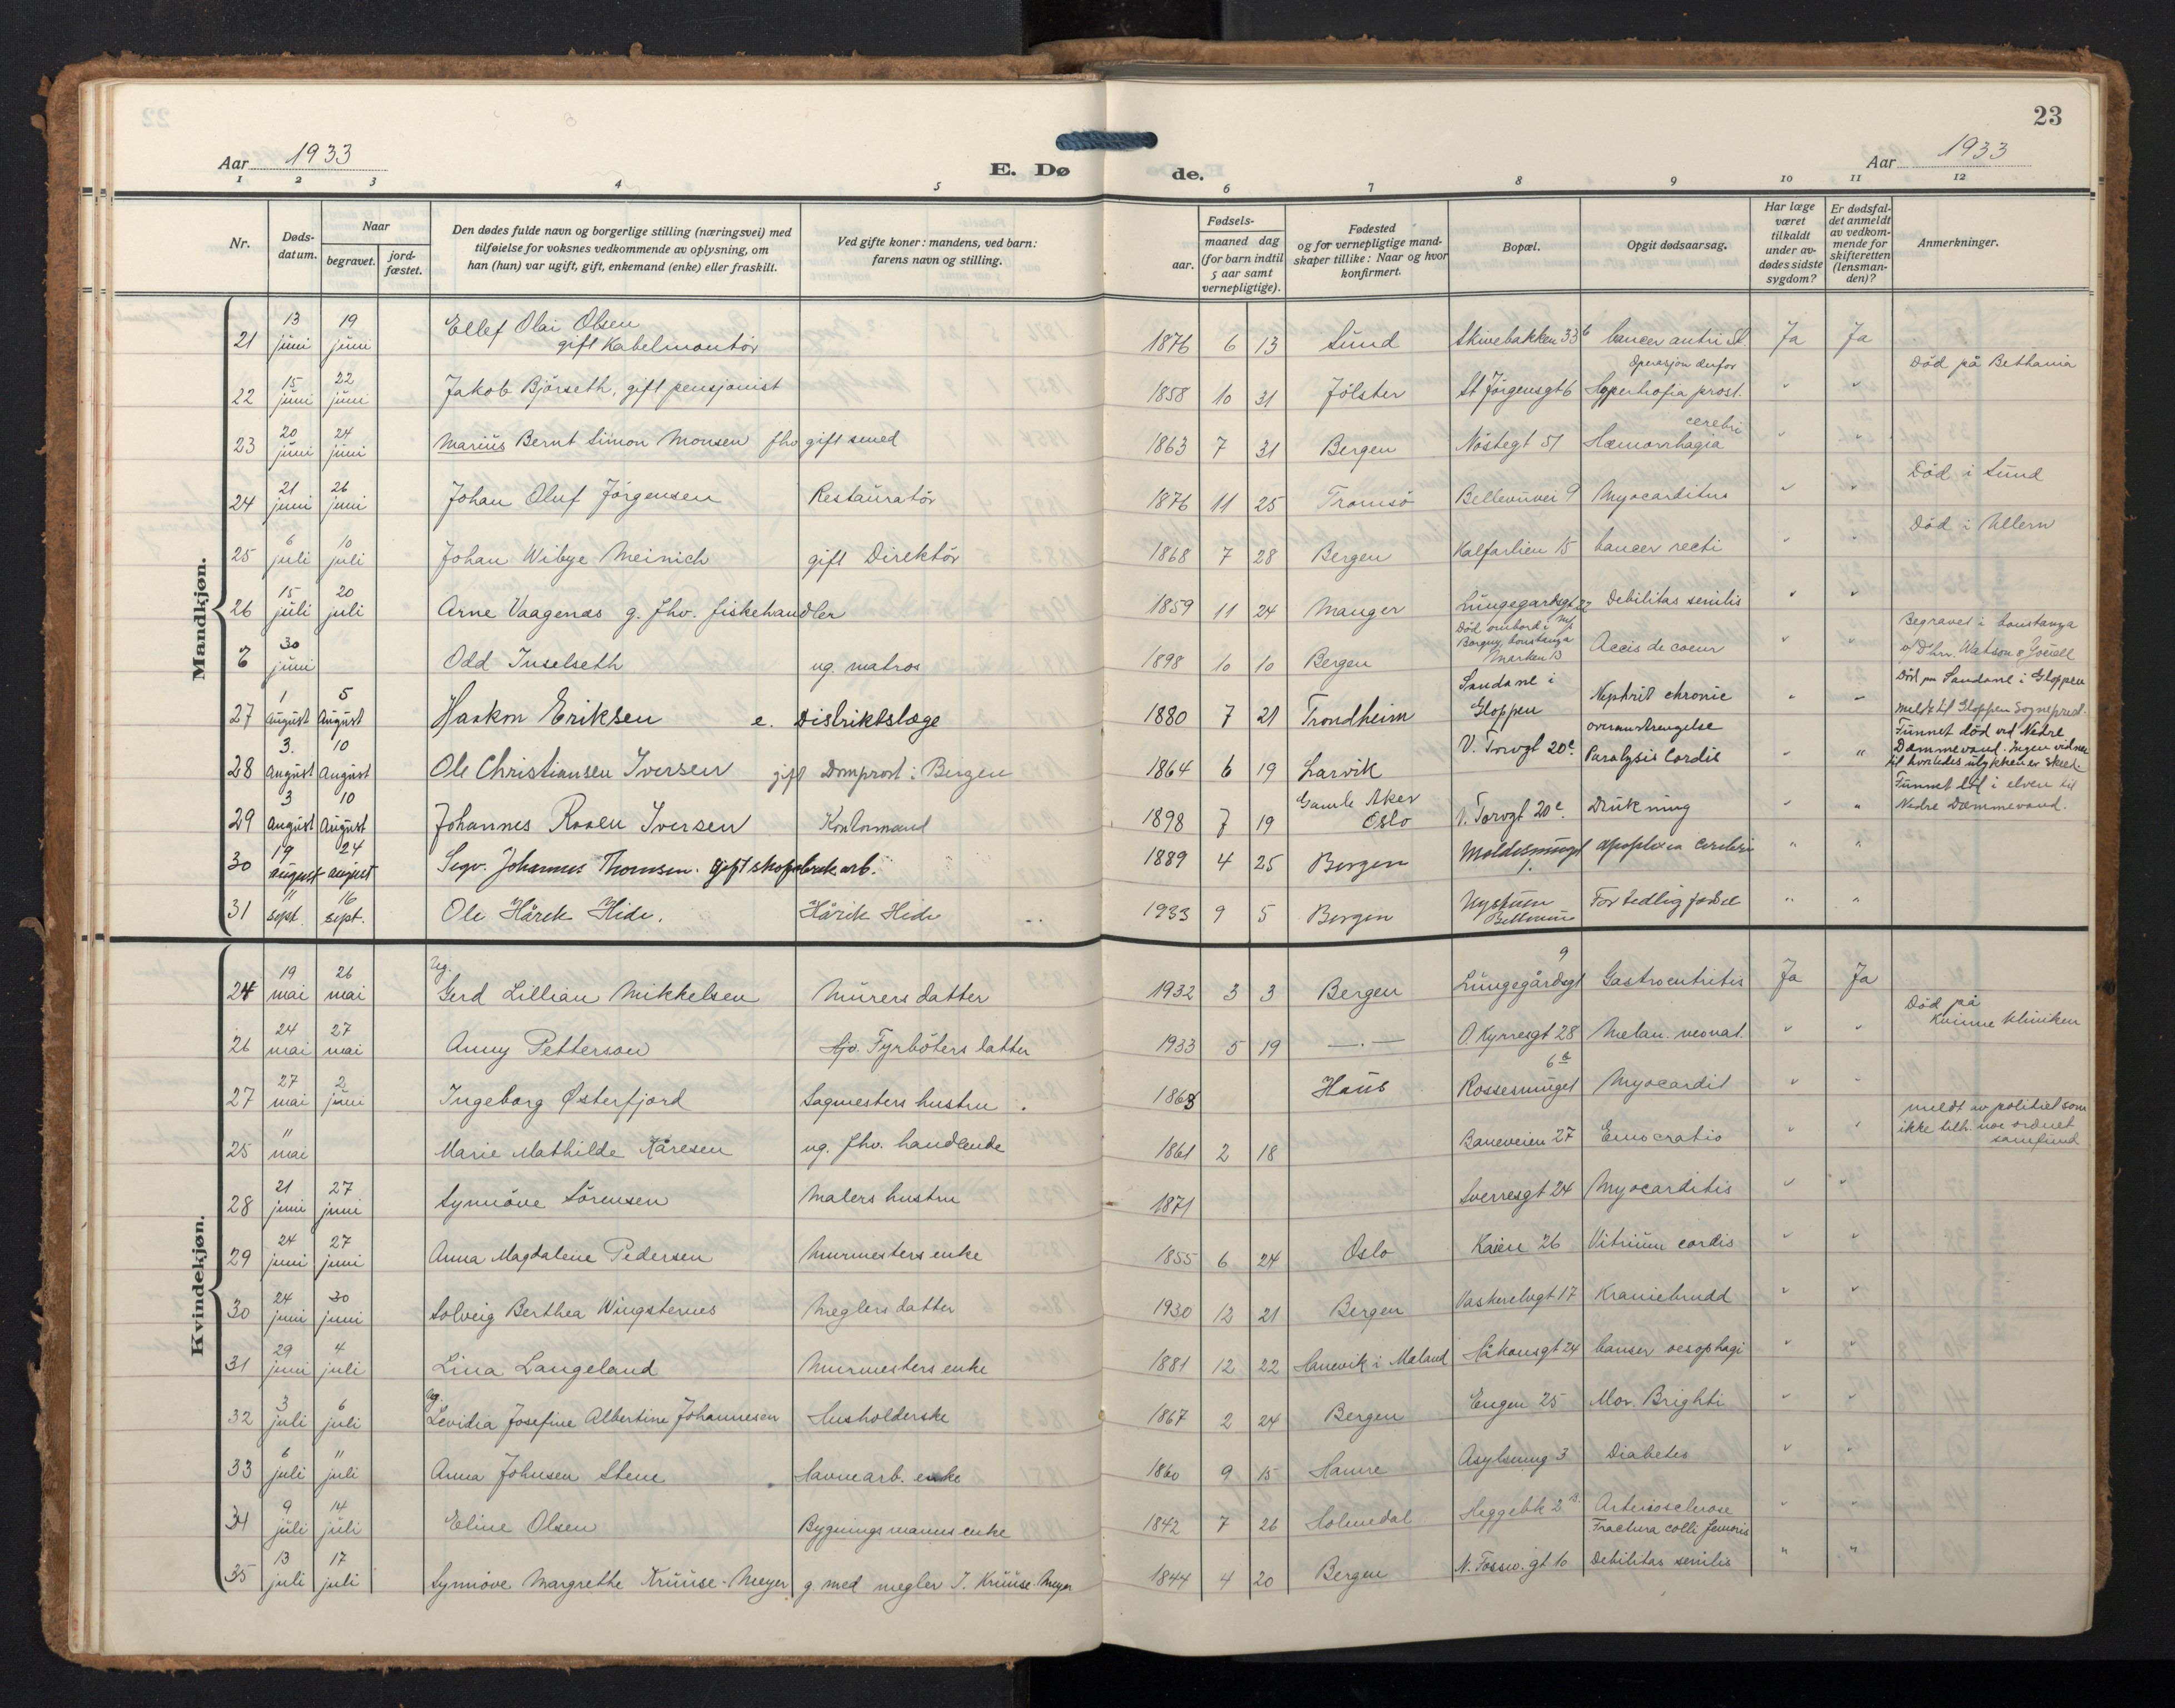 23
Aar 1933
E. Døde.
Aar 1933
1 2 3 4 5 6 7 8 9 10 11 12
Nr.
Døds-datum.
Naar
begravet.
jord-fæstet.
Den dødes fulde navn og borgerlige stilling (næringsvei) med tilføielse for voksnes vedkommende av oplysning, om han (hun) var ugift, gift, enkemand (enke) eller fraskilt.
Ved gifte koner: mandens, ved barn: farens navn og stilling.
Fødsels-
aar.
maaned dag
(for barn indtil 5 aar samt vernepligtige).
Fødested og for vernepligtige mandskaper tillike: Naar og hvor konfirmert.
Bopæl.
Opgit dødsaarsag.
Har læge været tilkaldt under avdødes sidste sygdom?
Er dødsfaldet anmeldt av vedkommende for skifteretten (lensmanden)?
Anmerkninger.
Mandkjøn.
21 13 juni 19 juni Ellef Olai Olsen gift Kabelmontör 1876 6 13 Sund Skivebakken 33b Cancer antri Operasjon derfor Ja Ja
22 15 juni 22 juni Jakob Björseth, gift pensjonist 1858 10 31 Jölster St Jörgensgt 6 Hypertrofia prost. " " Död på Bethania
23 20 juni 24 juni Marius Bernt Simon Monsen fhv gift smed 1863 7 31 Bergen Nöstegt 51 Hæmorrhagia cerebri " "
24 21 juni 26 juni Johan Oluf Jörgensen Restauratör 1876 11 25 Tromsö Bellevuvei 9 Myocarditus " " Död i Sund
25 6 juli 10 juli Johan Wibye Meinich gift Direktör 1868 7 28 Bergen Kalfarlien 15 Cancer recti " " Död i Ullern
26 15 juli 20 juli Arne Vaagenæs g. fhv. fiskehandler 1859 11 24 Manger Lungegardsgt 22 Debilitas senilis " "
30 juni Odd Inselseth ug. matros 1898 10 10 Bergen Död ombord i M/s Borgny, Constanza Marken 13 Accis de coeur " " Begravet i Constanza
27 1 august 5 August Haakon Eriksen e. Distriktslæge 1880 7 21 Trondheim Sandane i Gloppen Nephrit chronic " " Död paa Sandane i Gloppen meldt til Gloppen Sognepred.
28 3. august 10 August Ole Christiansen Iversen gift Domprost i Bergen 1864 6 19 Larvik V. Torvgt 20c overanstrengelse Paralysis Cordis " " Funnet död ved Nedre Dæmmevand. Ingen vidner til hvorledes ulykken er skeet.
29 3 august 10 August Johannes Raaen Iversen Kontormand 1898 7 19 Gamle Aker Oslo V. Torvgt 20c. Drukning " " Funnet död i elven til Nedre Dæmmevand.
30 19 august 24 august Segv. Johannes Thomsen. gift skofabrik.arb. 1889 4 25 Bergen Moldesmugt 1. apoplexia cerebri " "
31 11 sept. 16 sept. Ole Hårek Hide. Hårek Hide 1933 9 5 Bergen For tidlig födsel " "
Kvindekjøn.
24 19 mai 26 mai Ug. Gerd Lillian Mikkelsen Murers datter 1932 3 3 Bergen Lungegårdsgt 9 Gastroentritis Ja Ja
26 24 mai 27 mai Anny Petterson Fyrböters datter 1933 5 19 —.— O. Kyrresgt 28 Melan. neonat. " " Död på Kvinne klinikken
27 27 mai 2 juni Ingeborg Østerfjord Sagmesters hustru. 1868 Haus Rossesmuget 6a Myocardit " "
25 11 mai Marie Mathilde Kåresen ug. fhv. handlende 1861 2 18 Baneveien 27 " " meldt av politiet som ikke tilh. noe ordnet samfund
28 21 juni 27 juni Synnöve Sörensen Malers hustru 1871 Sverresgt 24 Myocarditis " "
29 24 juni 27 juni Anna Magdalene Pedersen Murmesters enke 1855 6 24 Oslo Kaien 26 Vitrium cordis " "
30 24 juni 30 juni Solveig Berthea Wingsternes Meglers datter 1930 12 21 Bergen Vaskerelvgt 17 Kraniebrudd " "
31 29 juni 4 juli Lina Langeland Murmesters enke 1881 12 22 Hanevik i Håkonsgt 24 Canser oesophagi " "
32 3 juli 6 juli Ug. Levidia Josefine Albertine Johannesen Husholderske 1867 2 24 Bergen Engen 25 Mor. Brighti " "
33 6 juli 11 juli Anna Johnsen Stene Havnearb. enke 1860 9 15 Hamre Asylsmug 3 Diabetes " "
34 9 juli 14 juli Eline Olsen Bygningsmanns enke 1842 7 26 Holmedal Heggebk 2 B. Arteriosclerose Fractura colli femoris " "
35 13 juli 17 juli Synnöve Margrethe Kruuse-Meyer g. med megler J. Kruuse-Meyer 1844 4 20 Bergen gt 10 Debilitas senilis " "